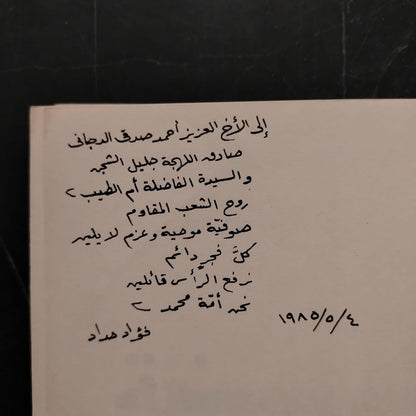 إلى الأخ العزيز أحمد صدقى الدجانى
صادق اللهجة جليل الشجن
والسيدة الفاضلة أم الطيب
روح الشعب المقاوم
صوفيّة موحية وعزم لا يلين
كلَّ فجر دائم
نرفع الرَّأس قائلين
نحن أمّة محمد
١٩٨٥/٥/٤
فؤاد حداد